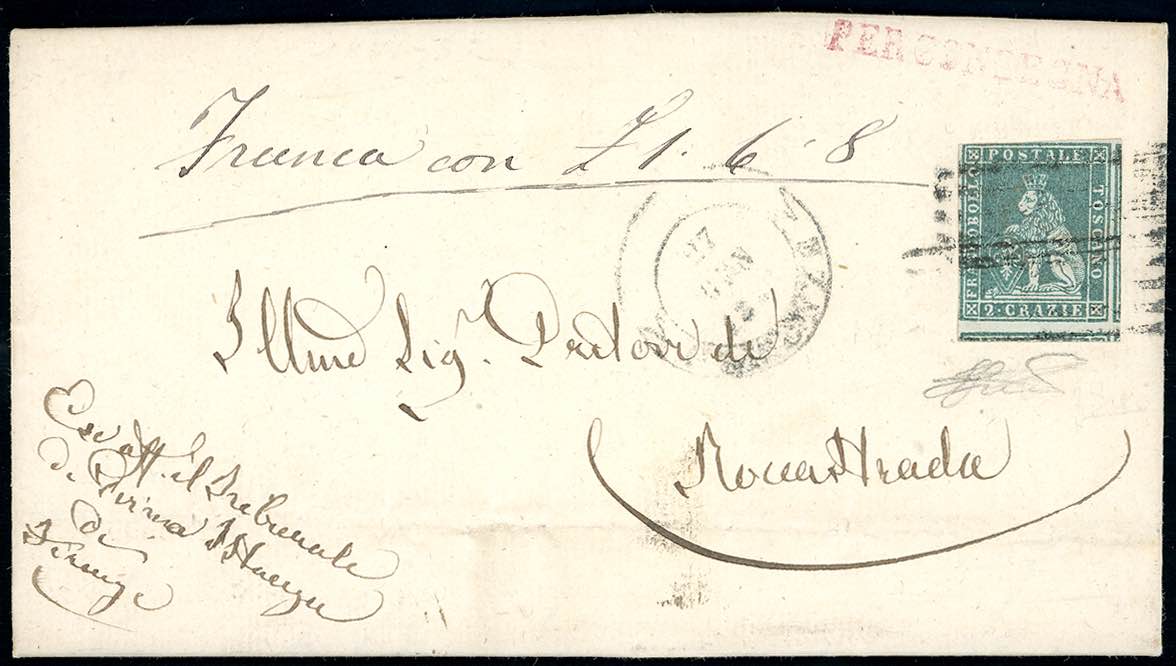 PER CONSEGNA
Franca con £ 1. 6. 8
FRANCOBOLLO POSTALE TOSCANO
2 · CRAZIE
27
Illmo Sig. Pretore di
Roccastrada
il Tribunale
di Prima Istanza
di
Firenze